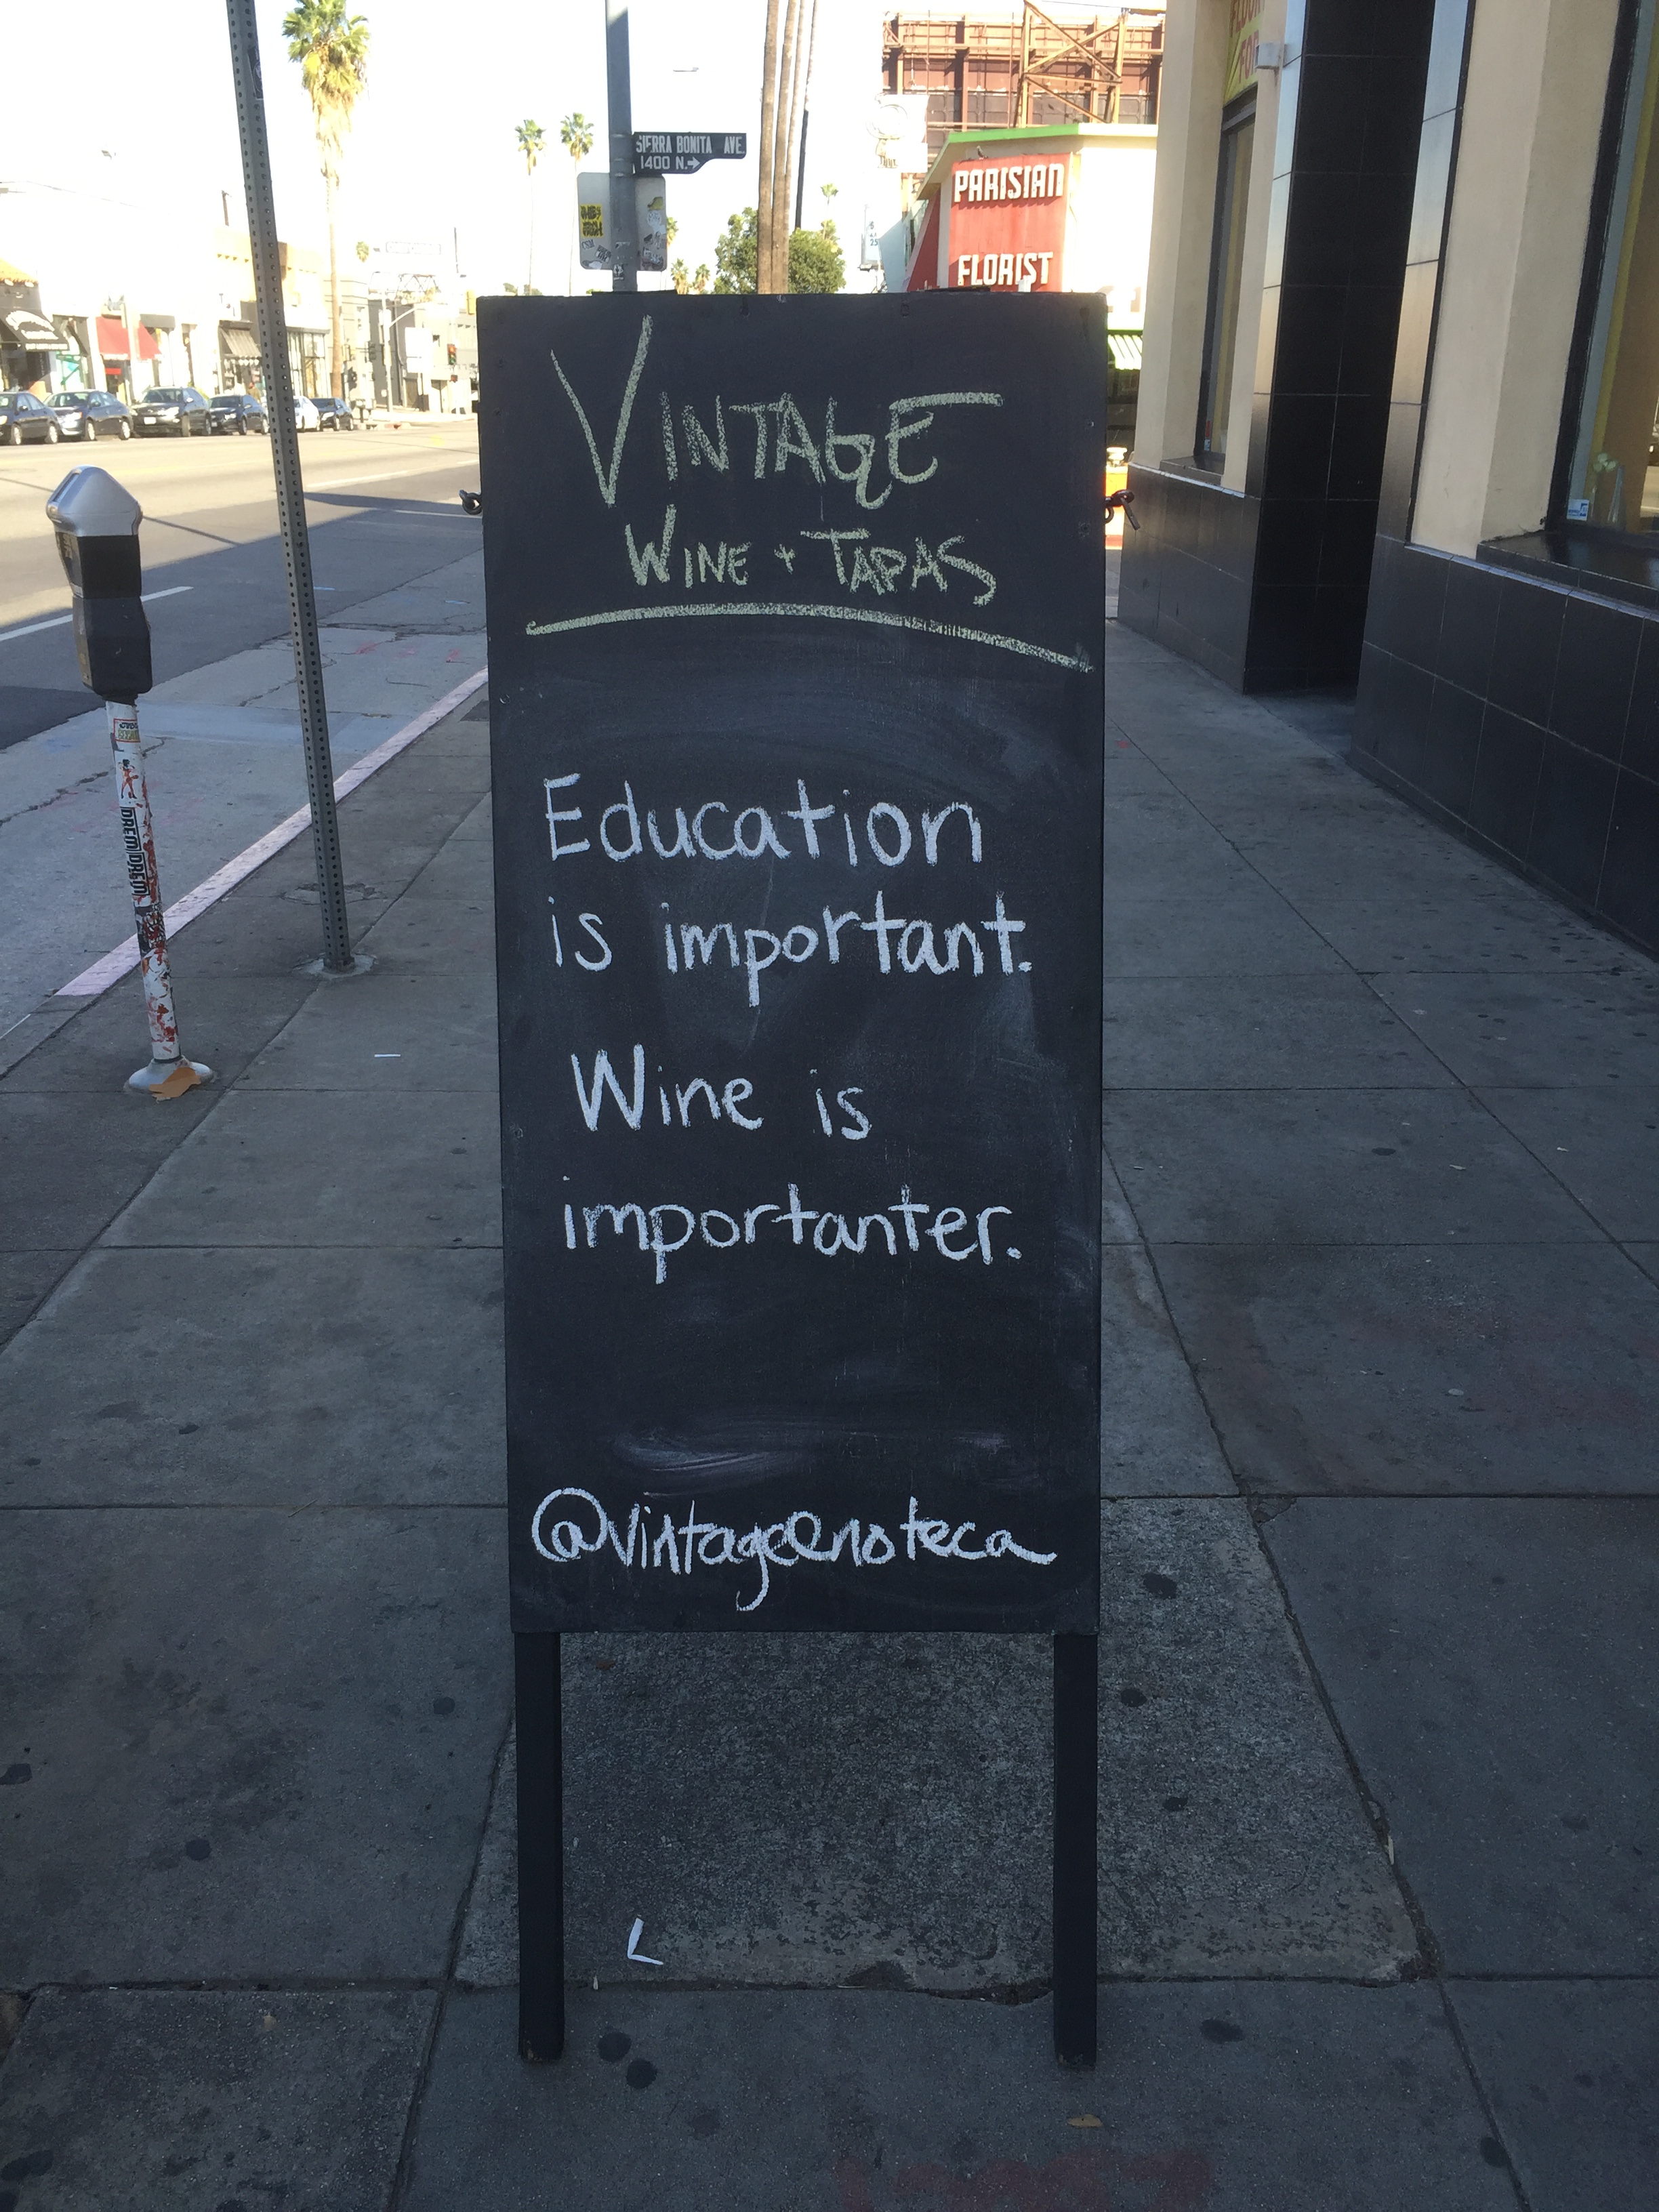 SIERRA BONITA AVE.
1400 N.→
PARISIAN
FLORIST
VINTAGE
WINE + TAPAS
Education
is important.
Wine is
importanter.
@vintageenoteca